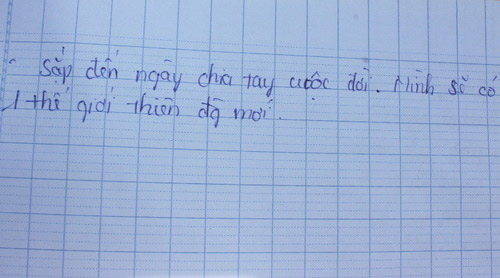 Sắp đến ngày chia tay cuộc đời. Mình sẽ có
1 thế giới thiên đg mới.